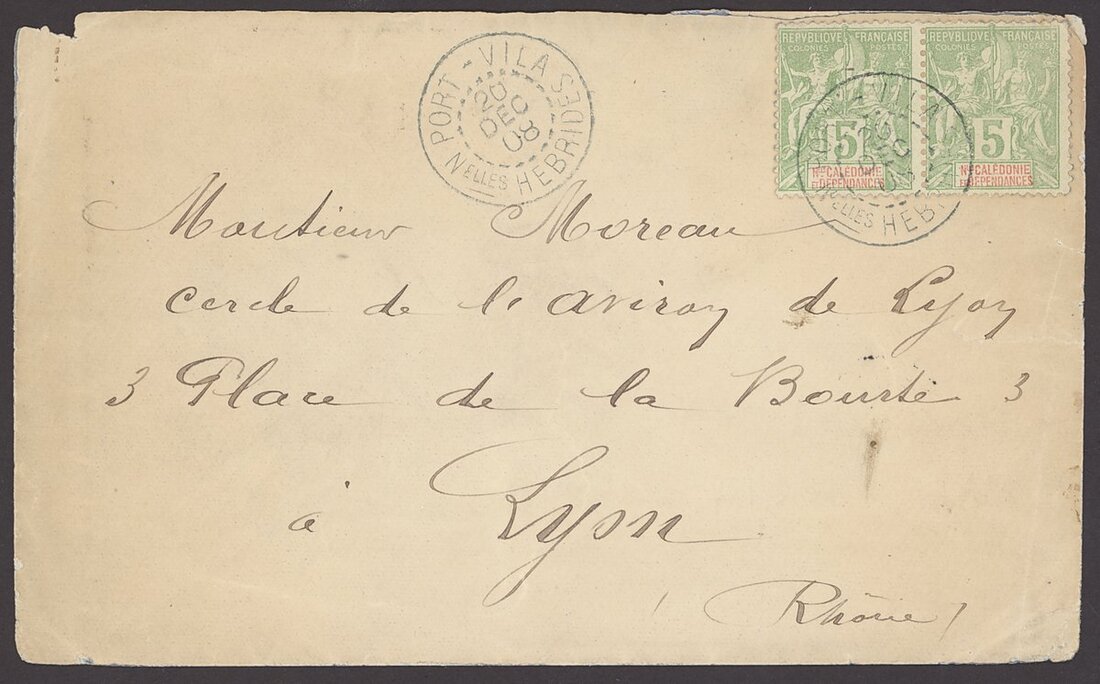 PORT-VILA
20
DEC
08
Nelles HEBRIDES
REPUBLIQUE FRANÇAISE
COLONIES POSTES
5
Nlle CALÉDONIE
ET DÉPENDANCES
REPUBLIQUE FRANÇAISE
COLONIES POSTES
5
Nlle CALÉDONIE
ET DÉPENDANCES
VILA
Nelles HEBR
Monsieur Moreau
cercle de l'aviron de Lyon
3 Place de la Bourse 3
à Lyon
(Rhône)